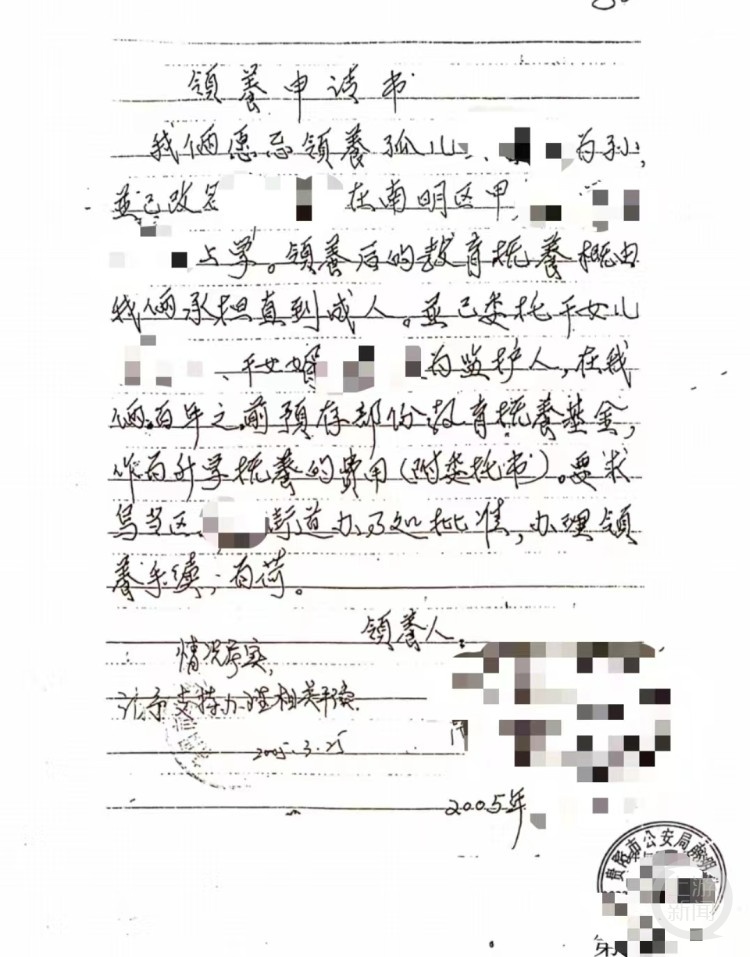 领养申请书
我俩愿意领养孤儿 为孙,
並已改名 在南明区甲
上学。领养后的教育抚养概由
我俩承担直到成人。並已委托干女儿
、干女婿 为监护人,在我
俩百年之前预存部份教育抚养基金,
作为升学抚养的费用(附委托书)。要求
乌当区 街道办事处批准,办理领
养手续;为荷。
领养人:
情况属实,
请予支持办理相关手续.
2005.3.25
2005年
贵阳市公安局南明
上游新闻
第